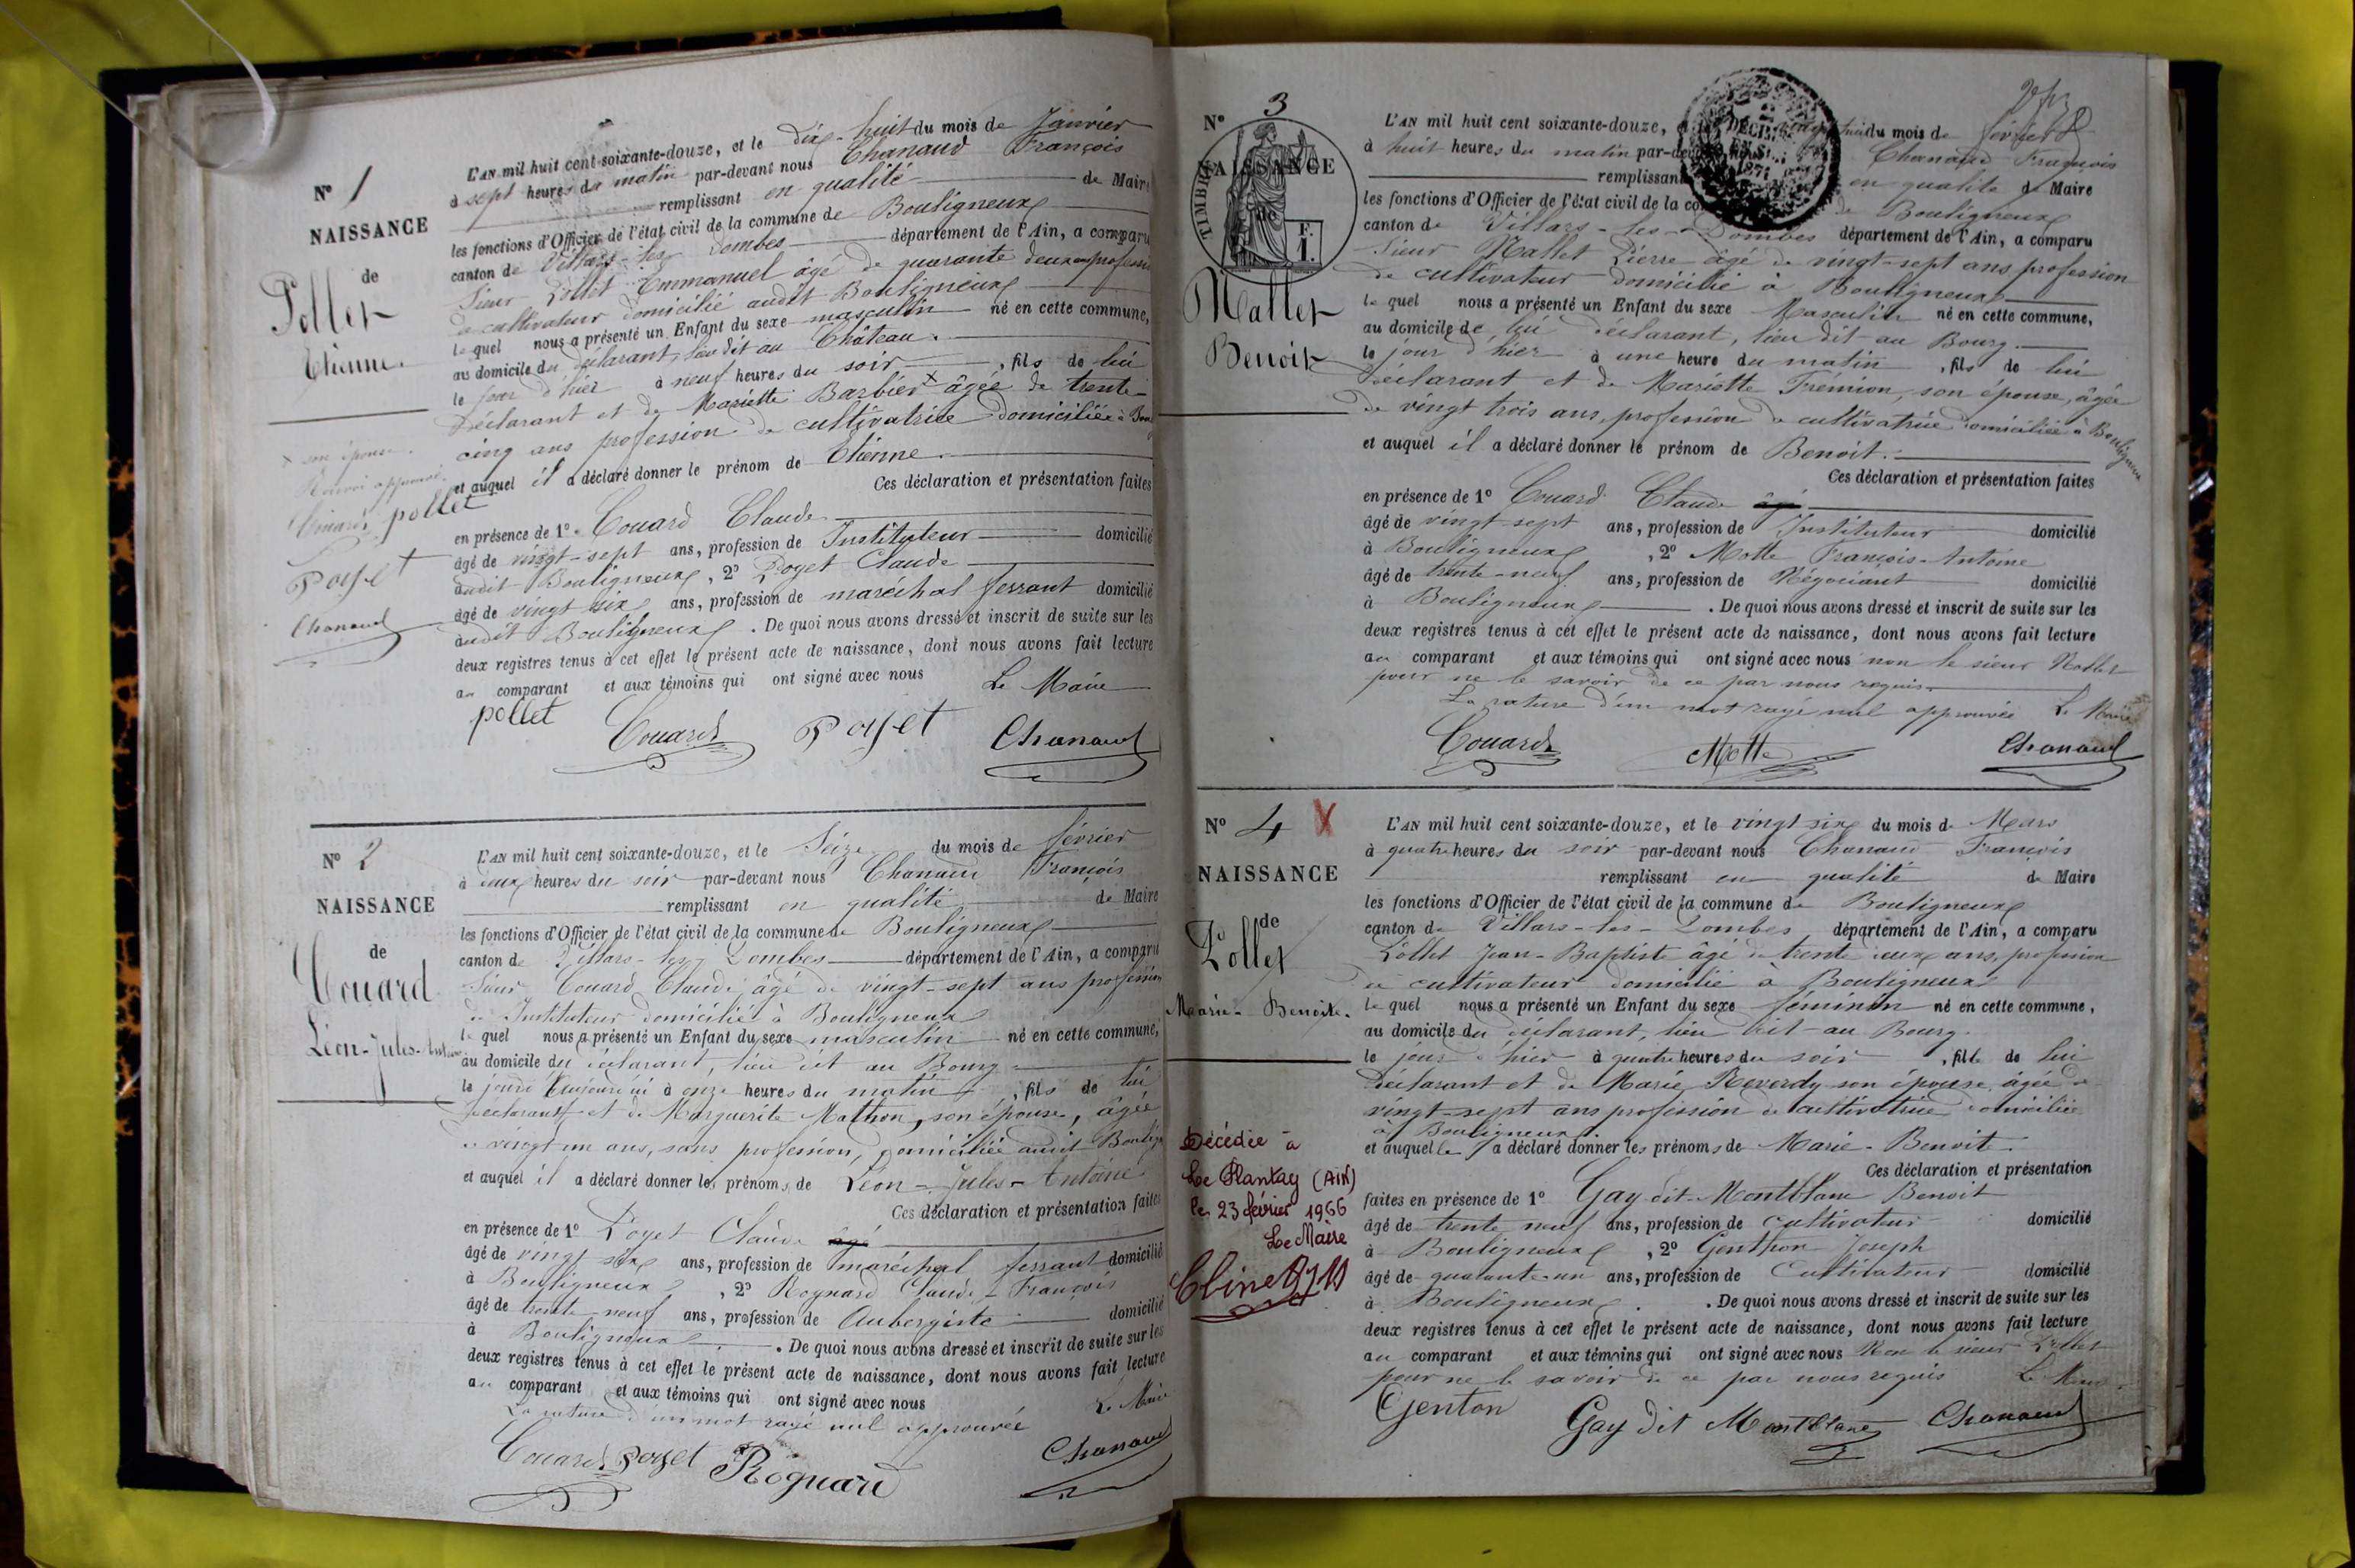 N° 1
NAISSANCE
de
Pollet
Etienne.
L'AN mil huit cent soixante-douze, et le dix-huit du mois de Janvier
à sept heures du matin par-devant nous Chanaud François
remplissant en qualité de Maire
les fonctions d'Officier de l'état civil de la commune de Bouligneux
canton de Villars-les-Dombes département de l'Ain, a comparu
Sieur Pollet Emmanuel âgé de quarante deux ans profession
de cultivateur domicilié audit Bouligneux
lequel nous a présenté un Enfant du sexe masculin né en cette commune,
au domicile du déclarant, lieu dit au Château.
le jour d'hier à neuf heures du soir, fils de lui
Déclarant et de Mariette Barbier x âgée de trente
cinq ans profession de cultivatrice domiciliée à
et auquel il a déclaré donner le prénom de Etienne.
Ces déclaration et présentation faites
en présence de 1° Couard Claude
âgé de vingt-sept ans, profession de Instituteur domicilié
audit Bouligneux, 2° Poyet Claude
âgé de vingt six ans, profession de maréchal ferrant domicilié
audit Bouligneux. De quoi nous avons dressé et inscrit de suite sur les
deux registres tenus à cet effet le présent acte de naissance, dont nous avons fait lecture
au comparant et aux témoins qui ont signé avec nous
Le Maire
pollet Couard Poyet Chanaud
x son épouse.
Renvoi approuvé.
Couard pollet
Poyet
Chanaud
N° 2
NAISSANCE
de
Couard
Léon-Jules-Antoine
L'AN mil huit cent soixante-douze, et le Seize du mois de février
à deux heures du soir par-devant nous Chanaud François
remplissant en qualité de Maire
les fonctions d'Officier de l'état civil de la commune de Bouligneux
canton de Villars-les-Dombes département de l'Ain, a comparu
Sieur Couard Claude âgé de vingt-sept ans profession
de Instituteur domicilié à Bouligneux
lequel nous a présenté un Enfant du sexe masculin né en cette commune,
au domicile du déclarant, lieu dit au Bourg
le jour d'aujourd'hui à onze heures du matin, fils de lui
déclarant et de Marguerite Mathon, son épouse, âgée
de vingt-un ans, sans profession, domiciliée audit
et auquel il a déclaré donner les prénoms de Léon-Jules-Antoine
Ces déclaration et présentation faites
en présence de 1° Poyet Claude âgé
âgé de vingt six ans, profession de maréchal ferrant domicilié
à Bouligneux, 2° Rognard Claude-François
âgé de trente-neuf ans, profession de Aubergiste domicilié
à Bouligneux. De quoi nous avons dressé et inscrit de suite sur les
deux registres tenus à cet effet le présent acte de naissance, dont nous avons fait lecture
au comparant et aux témoins qui ont signé avec nous
La rature d'un mot rayé nul approuvée Le Maire
Couard Poyet Rognard Chanaud
N° 3
NAISSANCE
TIMBRE
F. 1.
Mallet
Benoit
L'AN mil huit cent soixante-douze, du mois de février
à huit heures du matin par-devant nous Chanaud François
remplissant en qualité de Maire
les fonctions d'Officier de l'état civil de la de Bouligneux
canton de Villars-les-Dombes département de l'Ain, a comparu
Sieur Mallet Pierre âgé de vingt-sept ans profession
de cultivateur domicilié à Bouligneux
lequel nous a présenté un Enfant du sexe Masculin né en cette commune,
au domicile de lui déclarant, lieu dit au Bourg.
le jour d'hier à une heure du matin, fils de lui
Déclarant et de Mariette Frémion, son épouse, âgée
de vingt trois ans, profession de cultivatrice domiciliée à Bouligneux
et auquel il a déclaré donner le prénom de Benoit.
Ces déclaration et présentation faites
en présence de 1° Couard Claude âgé
âgé de vingt-sept ans, profession de Instituteur domicilié
à Bouligneux, 2° Motte François-Antoine
âgé de trente-neuf ans, profession de Négociant domicilié
à Bouligneux. De quoi nous avons dressé et inscrit de suite sur les
deux registres tenus à cet effet le présent acte de naissance, dont nous avons fait lecture
au comparant et aux témoins qui ont signé avec nous non le sieur Mallet
pour ne le savoir de ce par nous requis.
La rature d'un mot rayé nul approuvée Le Maire
Couard Motte Chanaud
N° 4 X
NAISSANCE
de
Pollet
Marie-Benoite.
L'AN mil huit cent soixante-douze, et le vingt six du mois de Mars
à quatre heures du soir par-devant nous Chanaud François
remplissant en qualité de Maire
les fonctions d'Officier de l'état civil de la commune de Bouligneux
canton de Villars-les-Dombes département de l'Ain, a comparu
Pollet Jean-Baptiste âgé de trente deux ans, profession
de cultivateur domicilié à Bouligneux
lequel nous a présenté un Enfant du sexe féminin né en cette commune,
au domicile du déclarant, lieu dit au Bourg.
le jour d'hier à quatre heures du soir, fille de lui
Déclarant et de Marie Reverdy son épouse, âgée de
vingt-sept ans profession de cultivatrice domiciliée
à Bouligneux.
et auquelle il a déclaré donner les prénoms de Marie-Benoite.
Ces déclaration et présentation
faites en présence de 1° Gay dit Montblanc Benoit
âgé de trente neuf ans, profession de cultivateur domicilié
à Bouligneux, 2° Genthon Joseph
âgé de quarante-un ans, profession de Cultivateur domicilié
à Bouligneux. De quoi nous avons dressé et inscrit de suite sur les
deux registres tenus à cet effet le présent acte de naissance, dont nous avons fait lecture
au comparant et aux témoins qui ont signé avec nous Non le sieur Pollet
pour ne le savoir de ce par nous requis Le Maire
Genton Gay dit Montblanc Chanaud
Décédée à
Le Plantay (AIN)
le 23 février 1966
Le Maire